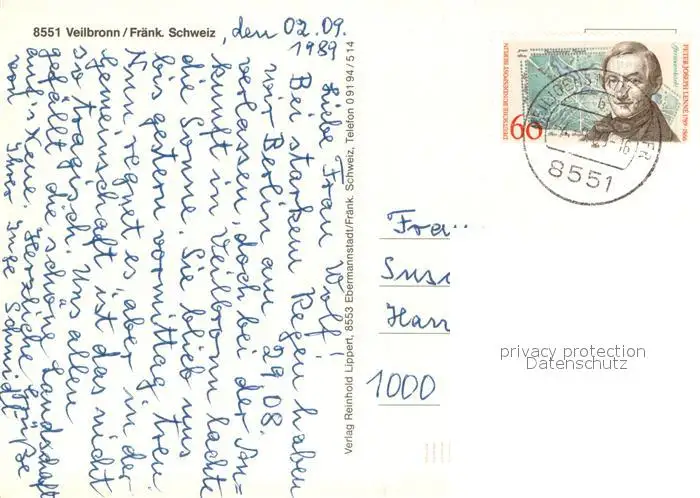 8551 Veilbronn / Fränk. Schweiz
, den 02.09.
1989
Liebe Frau Wolf!
Bei starkem Regen haben
wir Berlin am 29.08.
verlassen, doch bei der An=
kunft in Veilbronn lachte
die Sonne. Sie blieb uns
bis gestern vormittag treu
Nun regnet es, aber in der
Gemeinschaft ist das nicht
so tragisch. Uns allen
gefällt die schöne Landschaft
auf's Neue. Herzliche Grüße
von Ihrer Inge Schmidt
Verlag Reinhold Lippert, 8553 Ebermannstadt/Fränk. Schweiz, Telefon 0 91 94 / 5 14
DEUTSCHE BUNDESPOST BERLIN
60
PETER JOSEPH LENNÉ 1789-1866
8551
Frau
Susa
Han
1000
privacy protection
Datenschutz